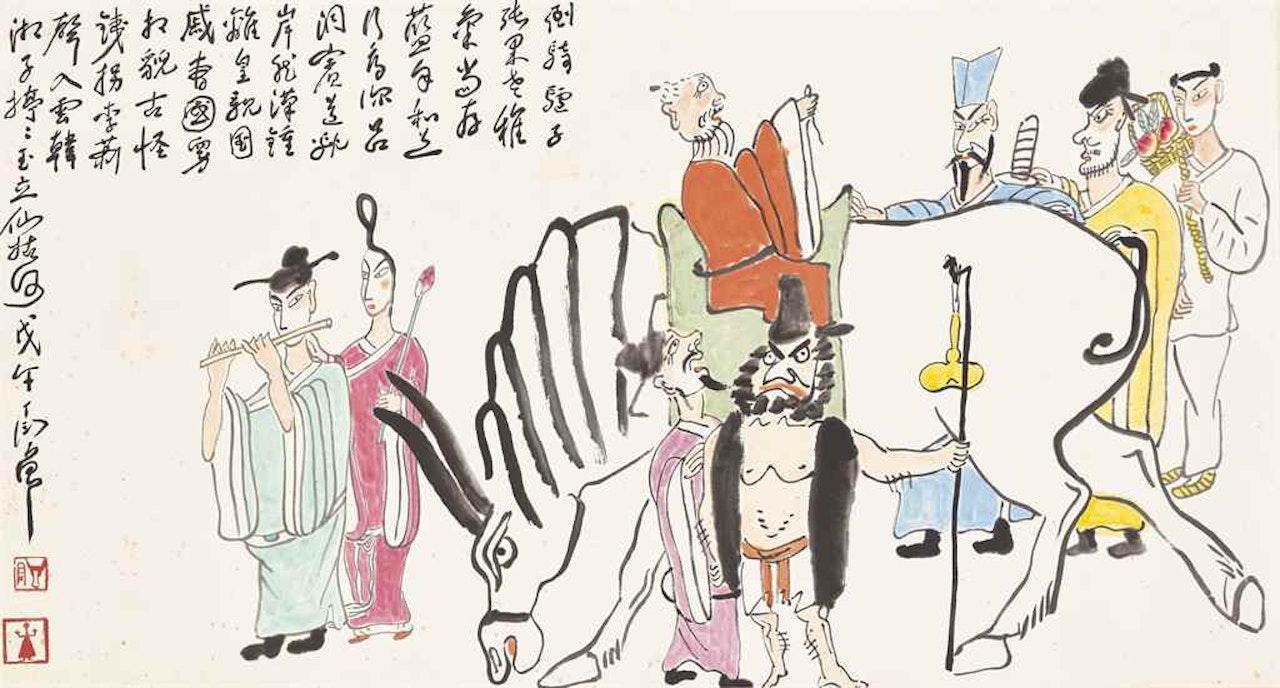 倒騎驢子
張果老稚
氣尚存
藍采和道
行高深呂
洞賓道貌
岸然漢鍾
離皇親國
戚曹國舅
相貌古怪
鐵拐李簫
聲入雲韓
湘子婷々玉立仙姑何 戊午 丁衍庸